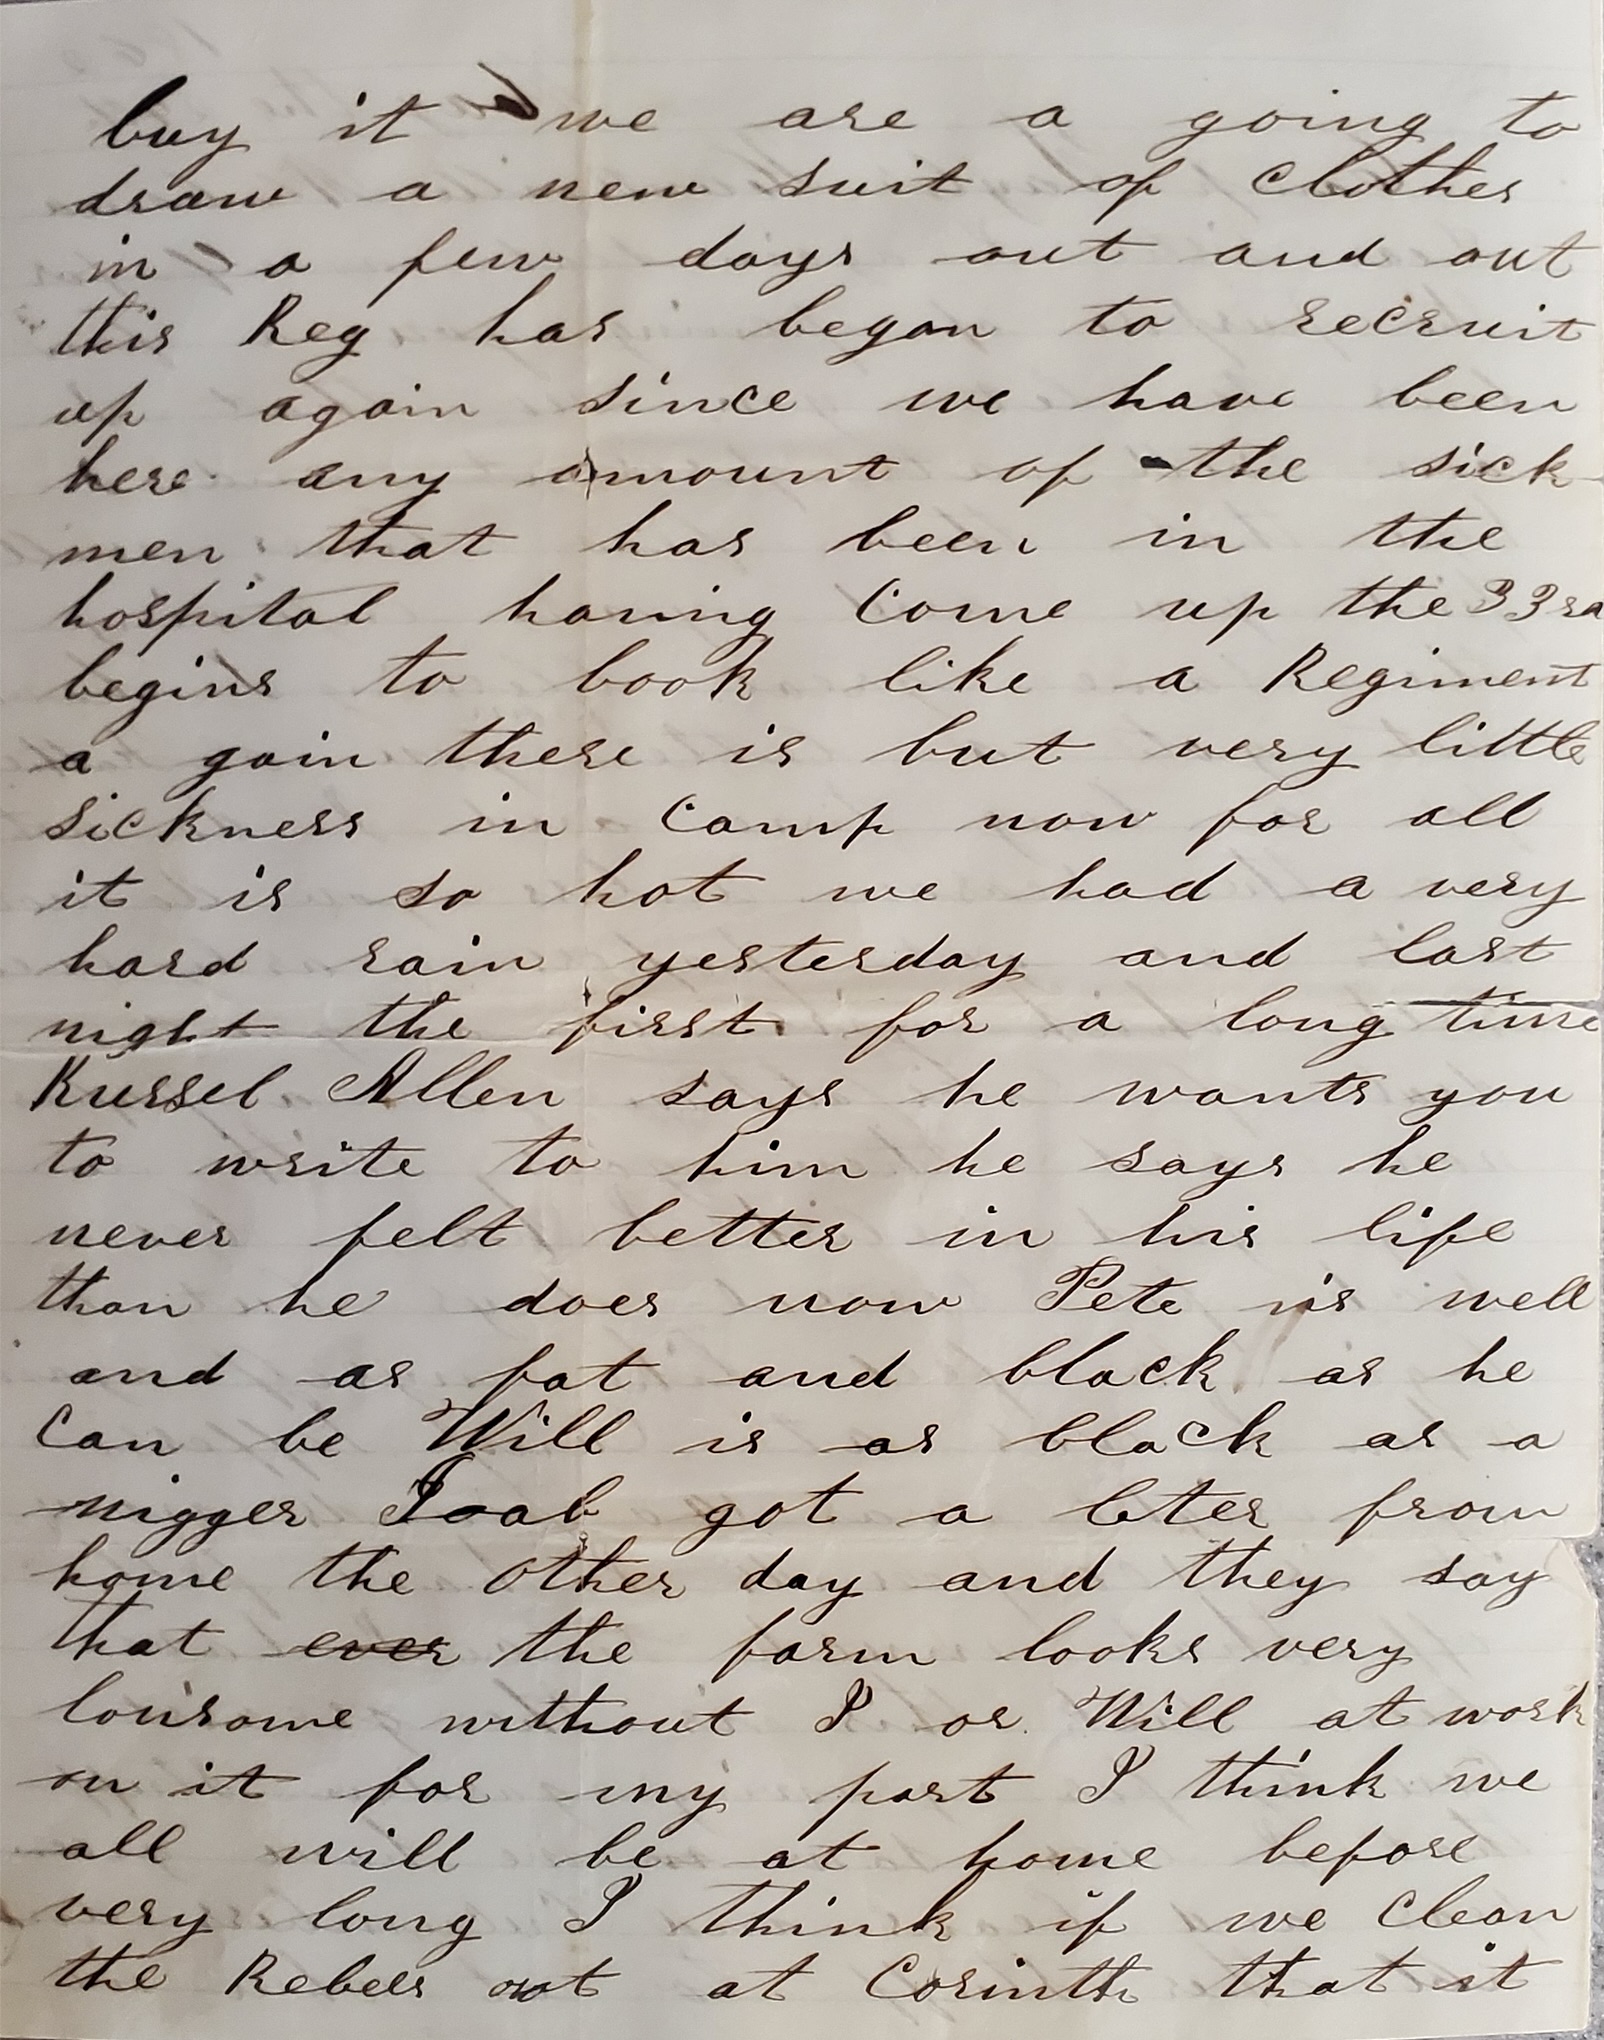 buy it we are a going to
draw a new suit of clothes
in a few days out and out
this Reg has began to recruit
up again since we have been
here any amount of the sick
men that has been in the
hospital having Come up the 33rd
begins to look like a Regiment
a gain there is but very little
sickness in Camp now for all
it is so hot we had a very
hard rain yesterday and last
night the first for a long time
Russel Allen says he wants you
to write to him he says he
never felt better in his life
than he does now Pete is well
and as fat and black as he
Can be Will is as black as a
nigger Joab got a leter from
home the other day and they say
that ever the farm looks very
lonsome without I or Will at work
on it for my part I think we
all will be at home before
very long I think if we Clean
the Rebels out at Corinth that it